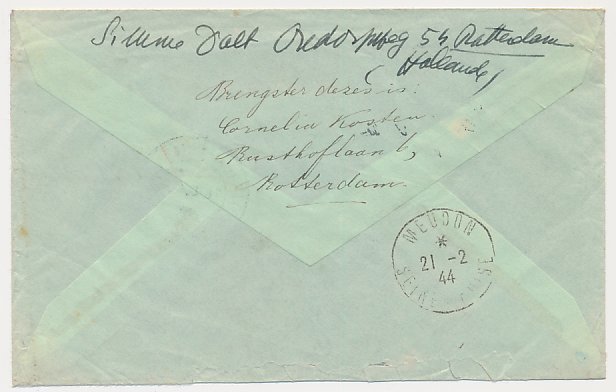 Oudorpweg 54 Rotterdam
(Hollande)
Brengster dezes is:
Cornelia Kosten.
Rusthoflaan 6,
Rotterdam.
MEUDON
*
21 -2
44
SEINE ET OISE